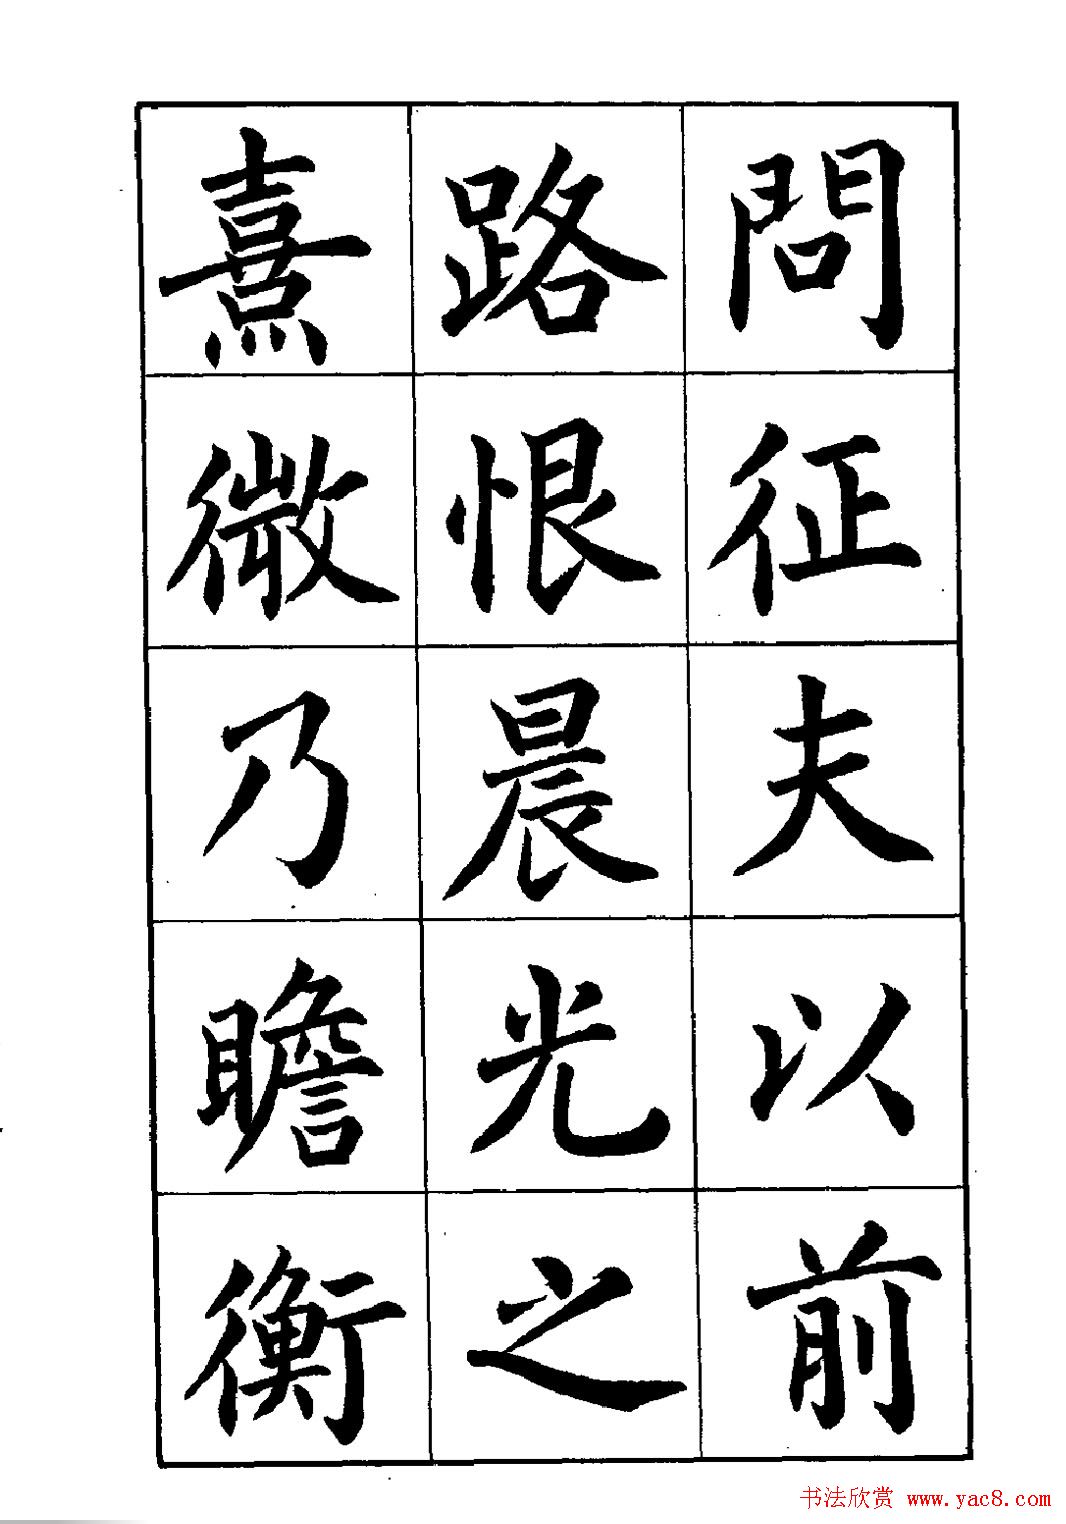 問征夫以前
路恨晨光之
熹微乃瞻衡
书法欣赏 www.yac8.com